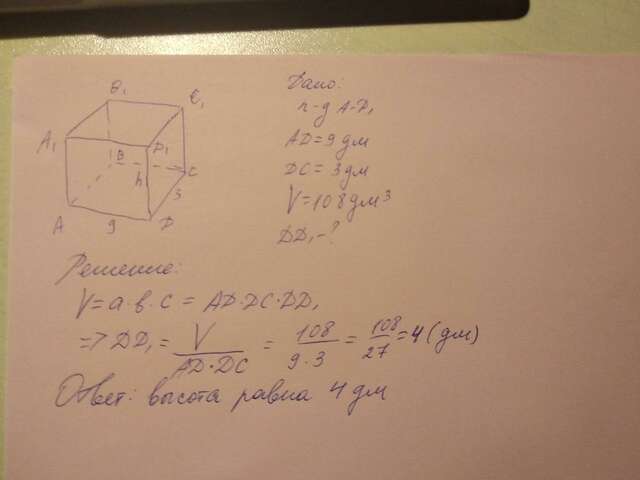 B₁
C₁
A₁
D₁
B
h
C
3
A
9
D
Дано:
п-д A-D₁
AD = 9 дм
DC = 3 дм
V = 108 дм³
DD₁ - ?
Решение:
V = a · b · c = AD · DC · DD₁
=> DD₁ = V / AD · DC = 108 / 9 · 3 = 108 / 27 = 4 (дм)
Ответ: высота равна 4 дм